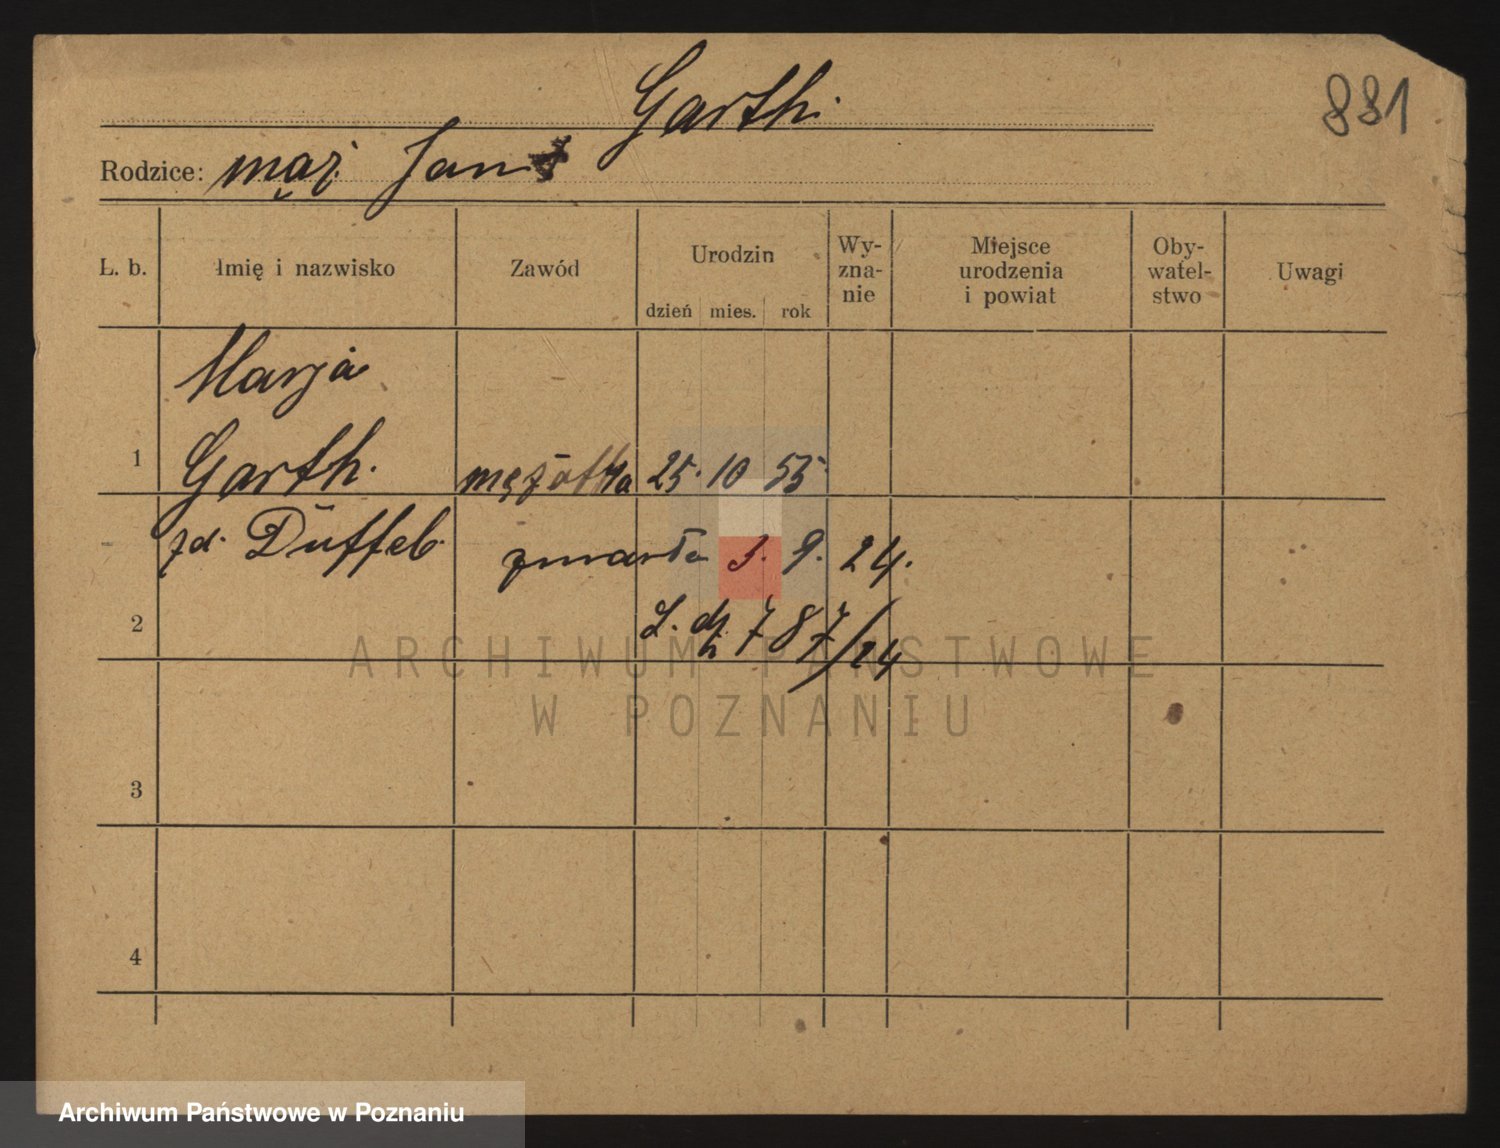 Garth.
881
Rodzice: mąż Jan
L. b. Imię i nazwisko Zawód Urodzin dzień mies. rok Wy-zna-nie Miejsce urodzenia i powiat Oby-watel-stwo Uwagi
Marja
1 Garth. mężatka 25. 10 55
zd. Düffeb. zmarła 3. 9. 24.
2 L. dz 787/24
ARCHIWUM PAŃSTWOWE
W POZNANIU
3
4
Archiwum Państwowe w Poznaniu